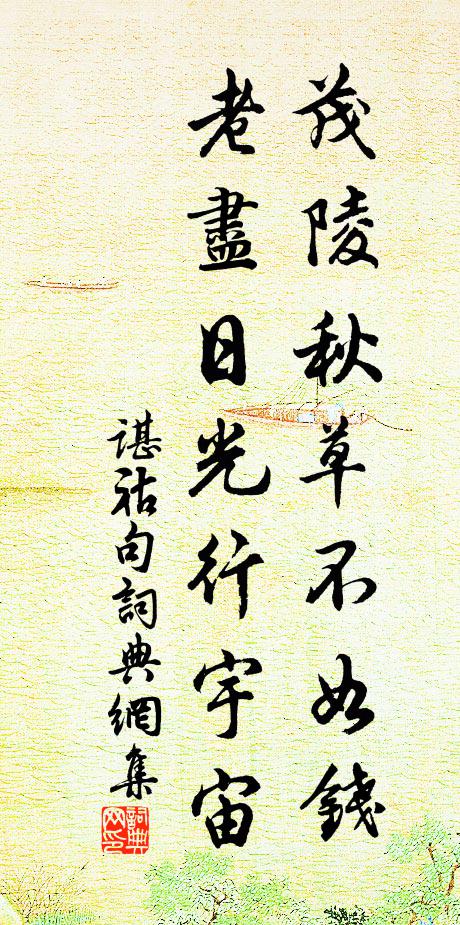 茂陵秋草不如錢
老盡日光行宇宙
諶祜句詞典網集
詞典
网印